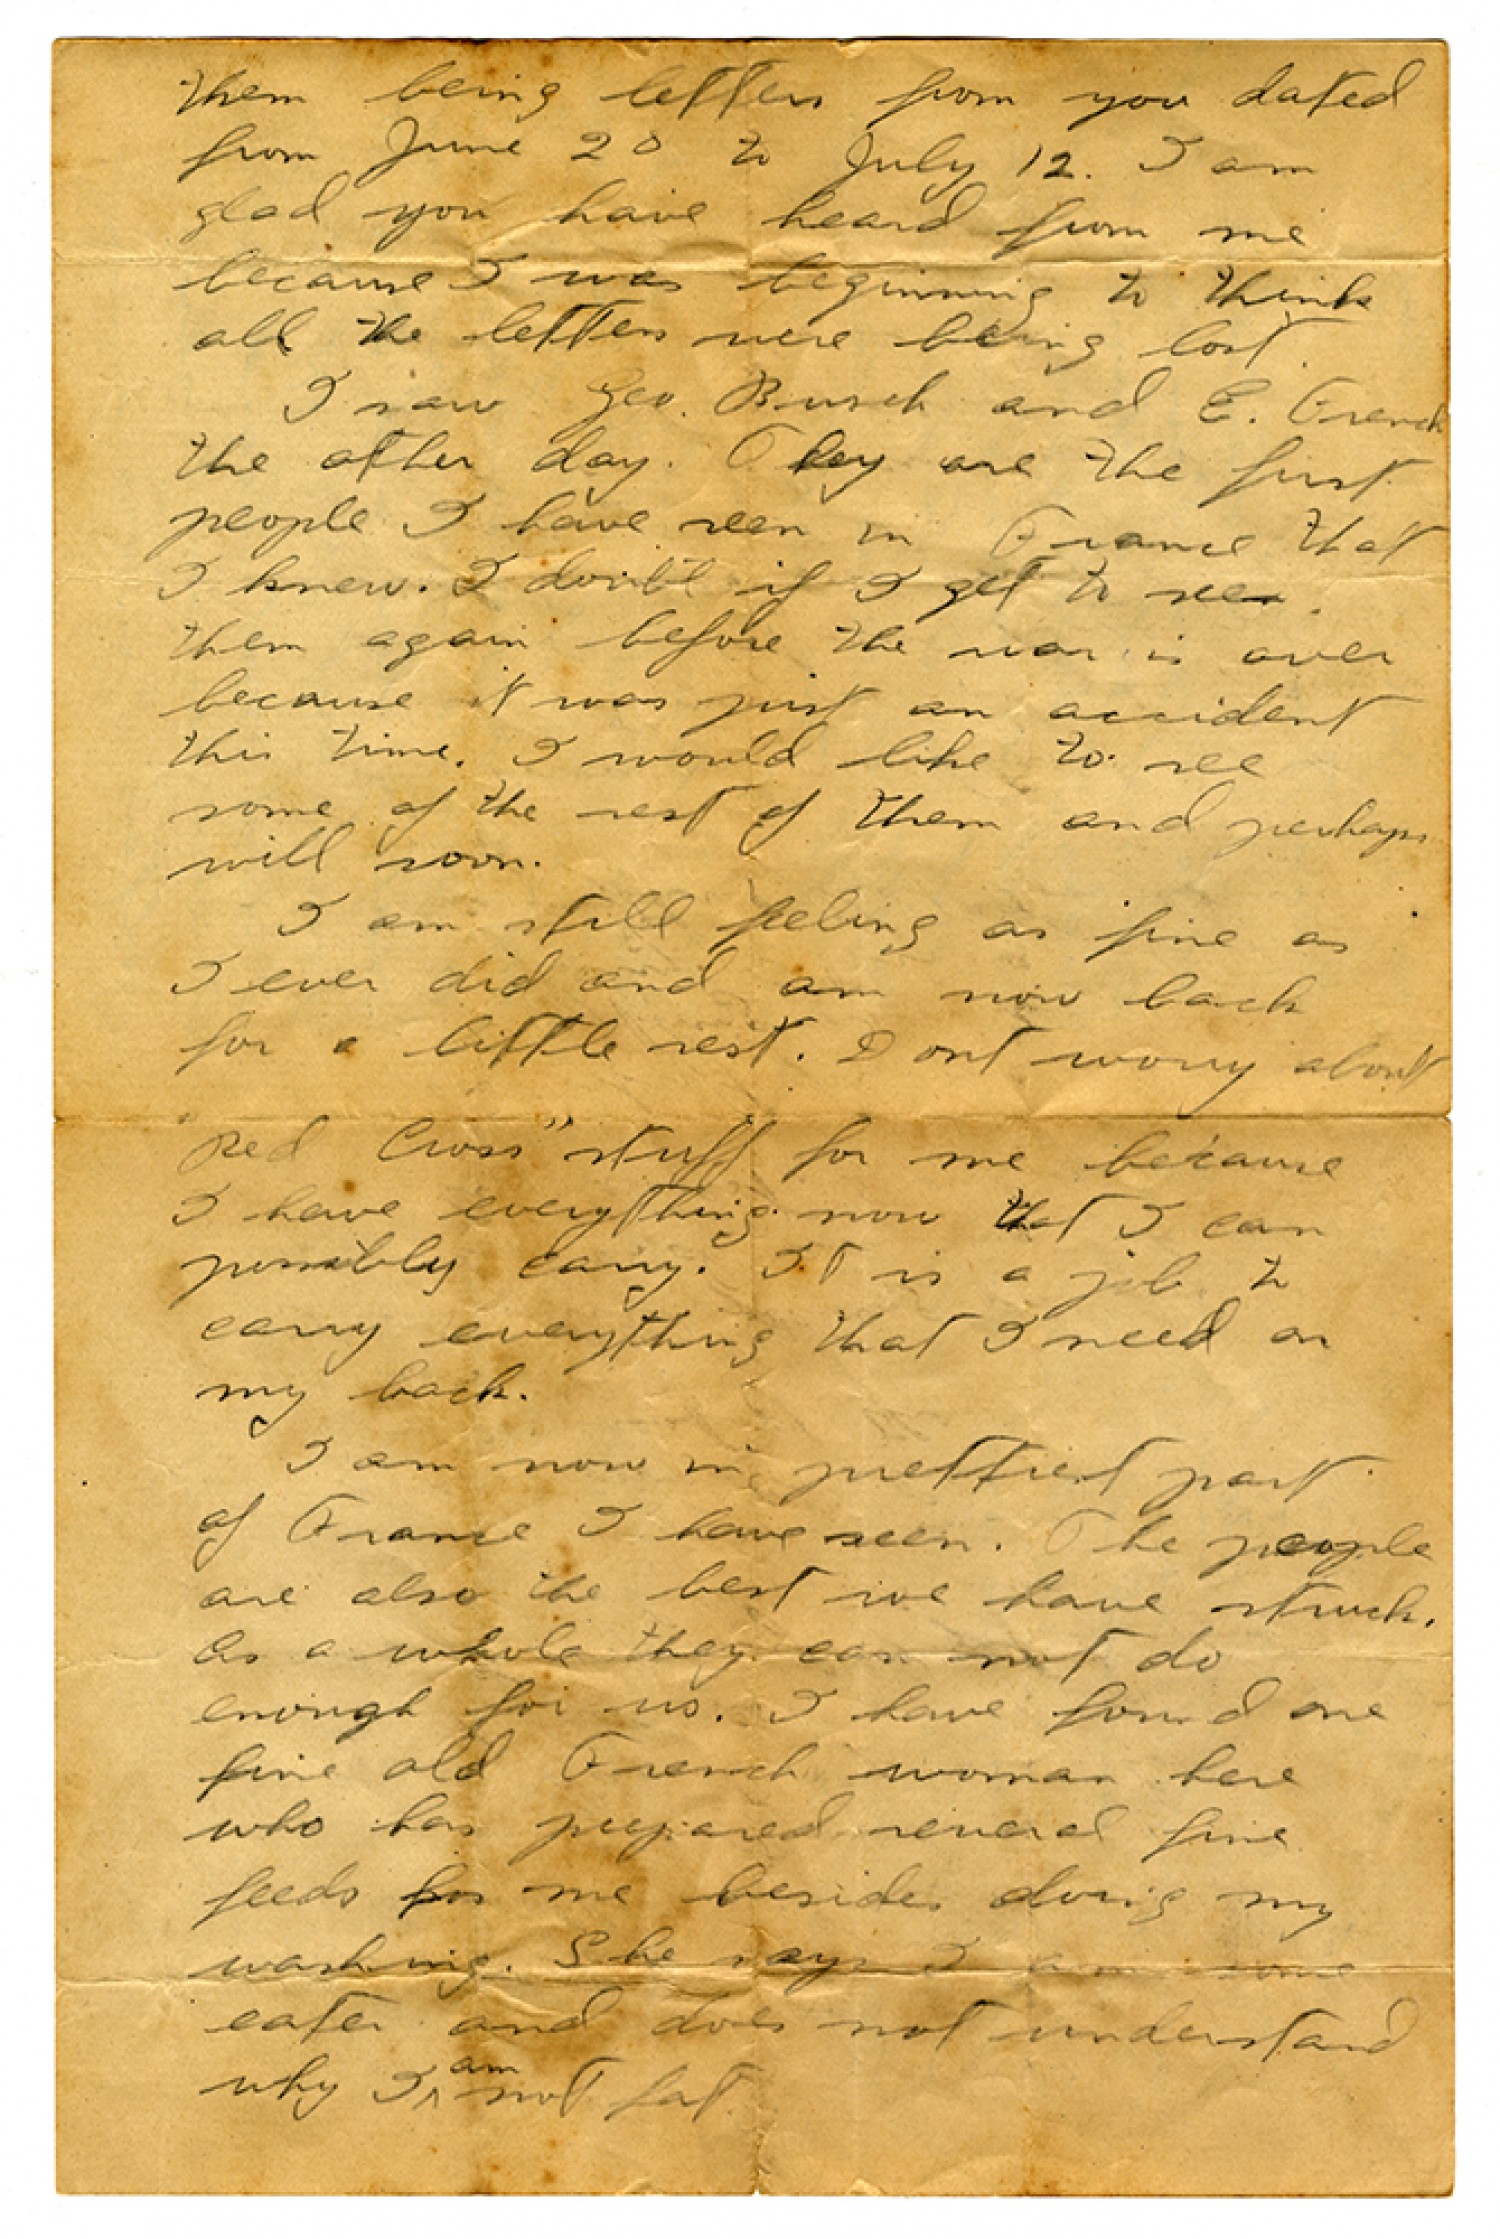 them being letters from you dated
from June 20 to July 12. I am
glad you have heard from me
because I was beginning to think
all the letters were being lost.
I saw Geo. Busch and E. French
the other day. They are the first
people I have seen in France that
I knew. I doubt if I get to see
them again before the war is over
because it was just an accident
this time. I would like to see
some of the rest of them and perhaps
will soon.
I am still feeling as fine as
I ever did and am now back
for a little rest. Dont worry about
"Red Cross" stuff for me because
I have everything now that I can
possibly carry. It is a job to
carry everything that I need on
my back.
I am now in prettiest part
of France I have seen. The people
are also the best we have struck.
As a whole they can not do
enough for us. I have found one
fine old French woman here
who has prepared several fine
feeds for me besides doing my
washing. She says I am some
eater and does not understand
why I am not fat.